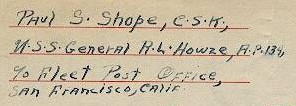 Paul S. Shope, C.S.K.,
U.S.S. General R.L. Howze, A.P. 134,
℅ Fleet Post Office,
San Francisco, Calif.